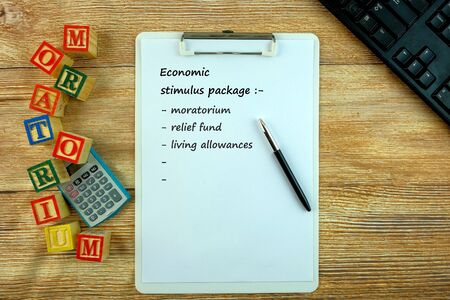 MORATORIUM
Economic
stimulus package :-
- moratorium
- relief fund
- living allowances
-
-